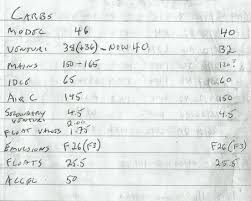 CARBS
MODEL 46 40
VENTURI 38(+36) - NOW 40 32
MAINS 150-165 120?
IDLE 65 60
AIR C 145 150
SECONDARY VENTURI 4.5 4.5
2.00
FLOAT VALVES 1.75
EMULSIONS F26(F3) F26(F3)
FLOATS 25.5 25.5
ACCEL 50